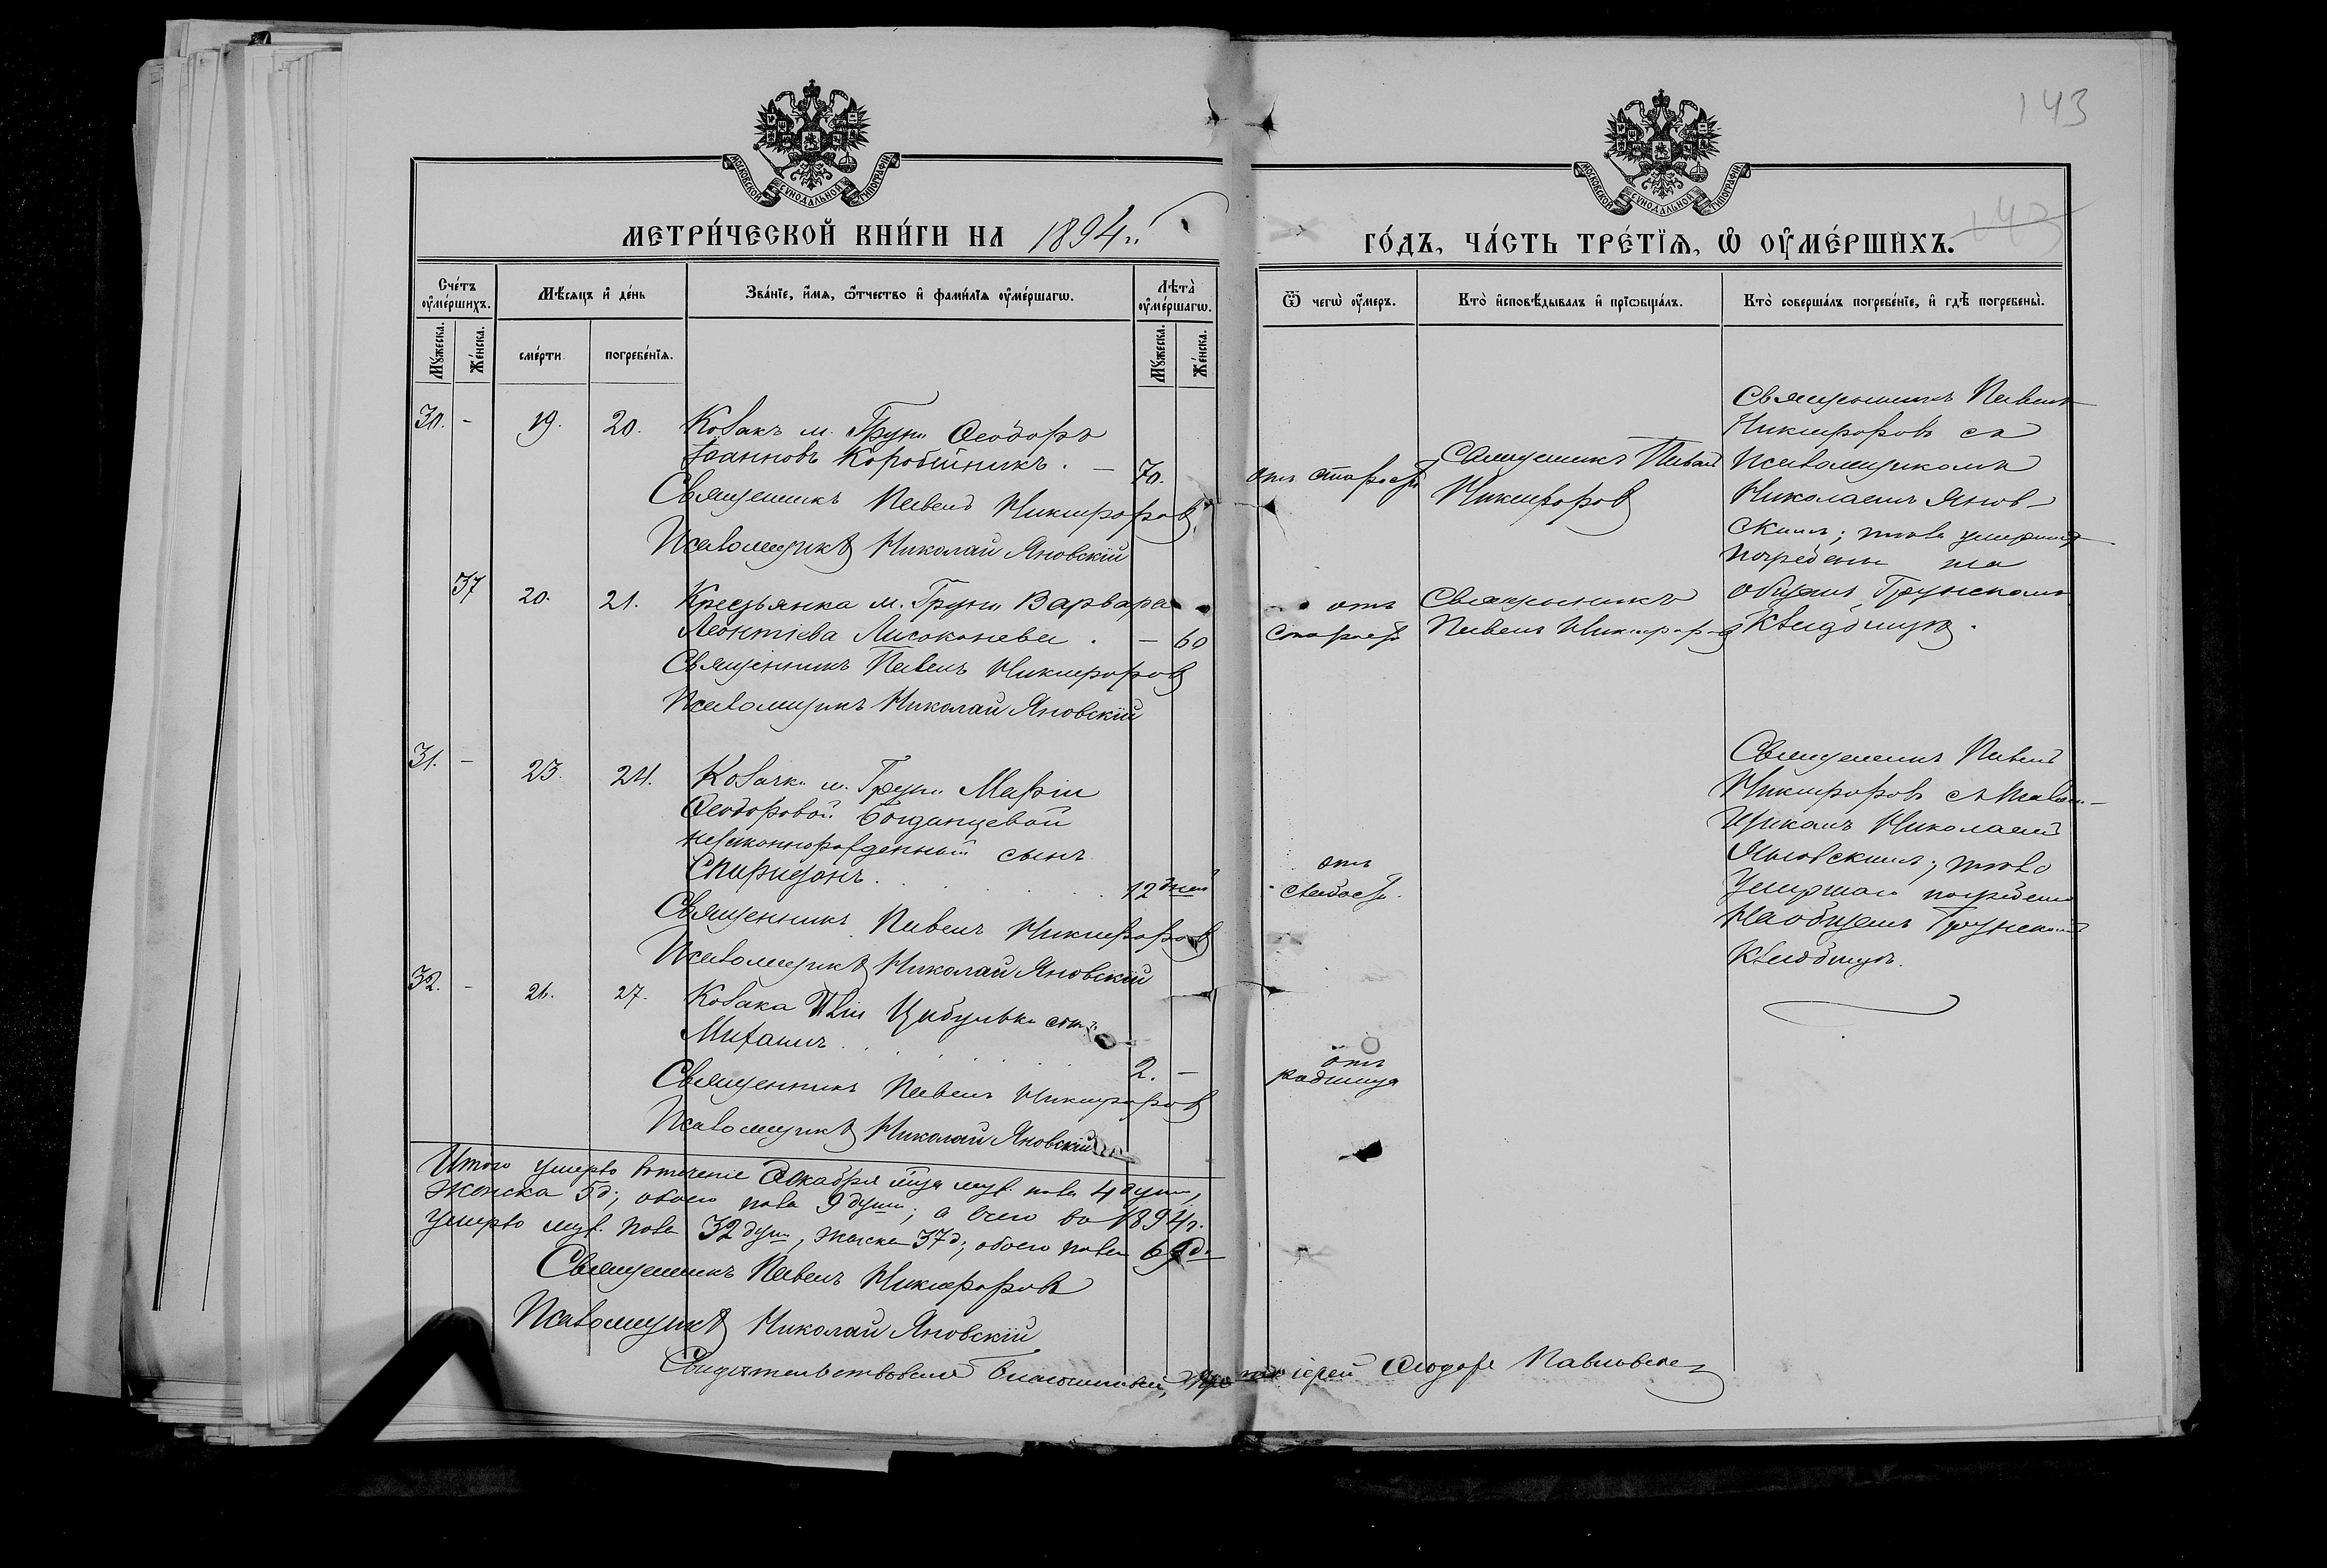 143
143
МОСКОВСКОЙ СѴНОДАЛЬНОЙ ТИПОГРАФІИ
МОСКОВСКОЙ СѴНОДАЛЬНОЙ ТИПОГРАФІИ
МЕТРИ́ЧЕСКОЙ КНИ́ГИ НА 1894й
ГО́ДЪ, ЧА́СТЬ ТРЕ́ТІѦ, Ѽ ОУ҆МЕ́РШИХЪ.
Сче́тъ оу҆ме́ршихъ.
Мѣ́сяцъ и҆ де́нь
Зва́нїе, и҆́мѧ, ѻ҆́тчество и҆ фами́лїѧ оу҆ме́ршагѡ.
Лѣта̀ оу҆ме́ршагѡ.
Ѿ чегѡ̀ оу҆́меръ.
Кто̀ и҆сповѣ́дывалъ и҆ прїѡбща́лъ.
Кто̀ соверша́лъ погребе́нїе, и҆ гдѣ̀ погребены̀.
Мꙋ́жеска.
Же́нска.
сме́рти
погребе́нїѧ.
Мꙋ́жеска.
Же́нска.
30. - 19. 20. Козакъ м. Груни Ѳеодоръ
Іоанновъ Коробейникъ. — 70.
Священникъ Павелъ Никифоровъ
Псаломщикъ Николай Яновскій
отъ старости
Священникъ Павелъ
Никифоровъ
Священникъ Павелъ
Никифоровъ съ
Псаломщикомъ
Николаемъ Янов-
скимъ; тѣла умершихъ
погребены на
общемъ Грунскомъ
кладбищѣ.
37 20. 21. Крестьянка м. Груни Варвара
Леонтіева Лисоконева. — 60
Священникъ Павелъ Никифоровъ
Псаломщикъ Николай Яновскій
отъ
старости
Священникъ
Павелъ Никифоровъ
31. - 23. 24. Козачки м. Груни Маріи
Ѳеодоровой Богданцевой
незаконнорожденный сынъ
Спиридонъ. 12 дней
Священникъ Павелъ Никифоровъ
Псаломщикъ Николай Яновскій
отъ
слабости.
Священникъ Павелъ
Никифоровъ съ Псалом-
щикомъ Николаемъ
Яновскимъ; тѣло
умершаго погребено
на общемъ Грунскомъ
кладбищѣ.
32. - 26. 27. Козака Иліи Цыбульки сынъ
Михаилъ. 2. —
Священникъ Павелъ Никифоровъ
Псаломщикъ Николай Яновскій
отъ
родимца
Итого умерло втеченіе Декабря м-ца муж. пола 4 души,
женска 5 д; обоего пола 9 душъ; а всего въ 1894 г.
умерло муж. пола 32 душ, женска 37 д; обоего пола 69 д.
Священникъ Павелъ Никифоровъ
Псаломщикъ Николай Яновскій
Свидѣтельствовалъ Благочинный, Протоіерей Ѳеодоръ Павловскій